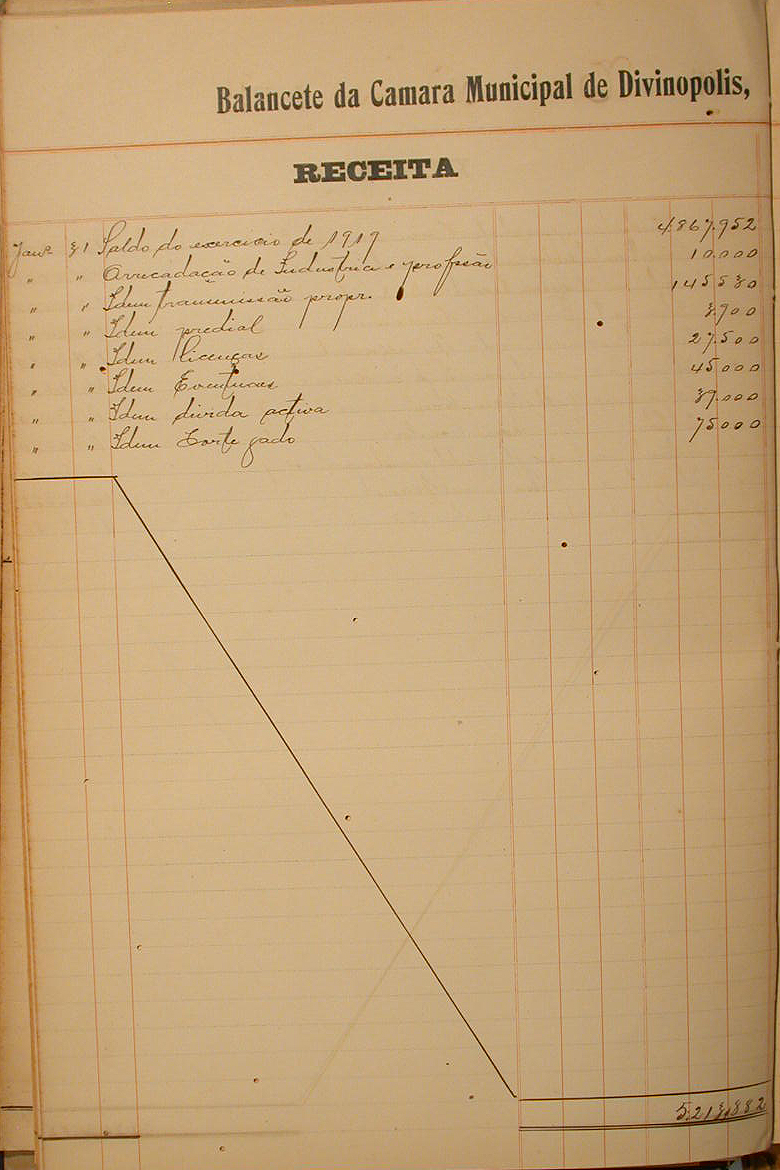 Balancete da Camara Municipal de Divinopolis,
RECEITA
Janº 31 Saldo do exercicio de 1919 4.867.952
" " Arrecadação de Industria e profssão 10.000
" " Idem transmissão propr. 145530
" " Idem predial 3.900
" " Idem licenças 27.500
" " Idem Eventuaes 45000
" " Idem divida activa 39.000
" " Idem Corte gado 75000
5.213.882